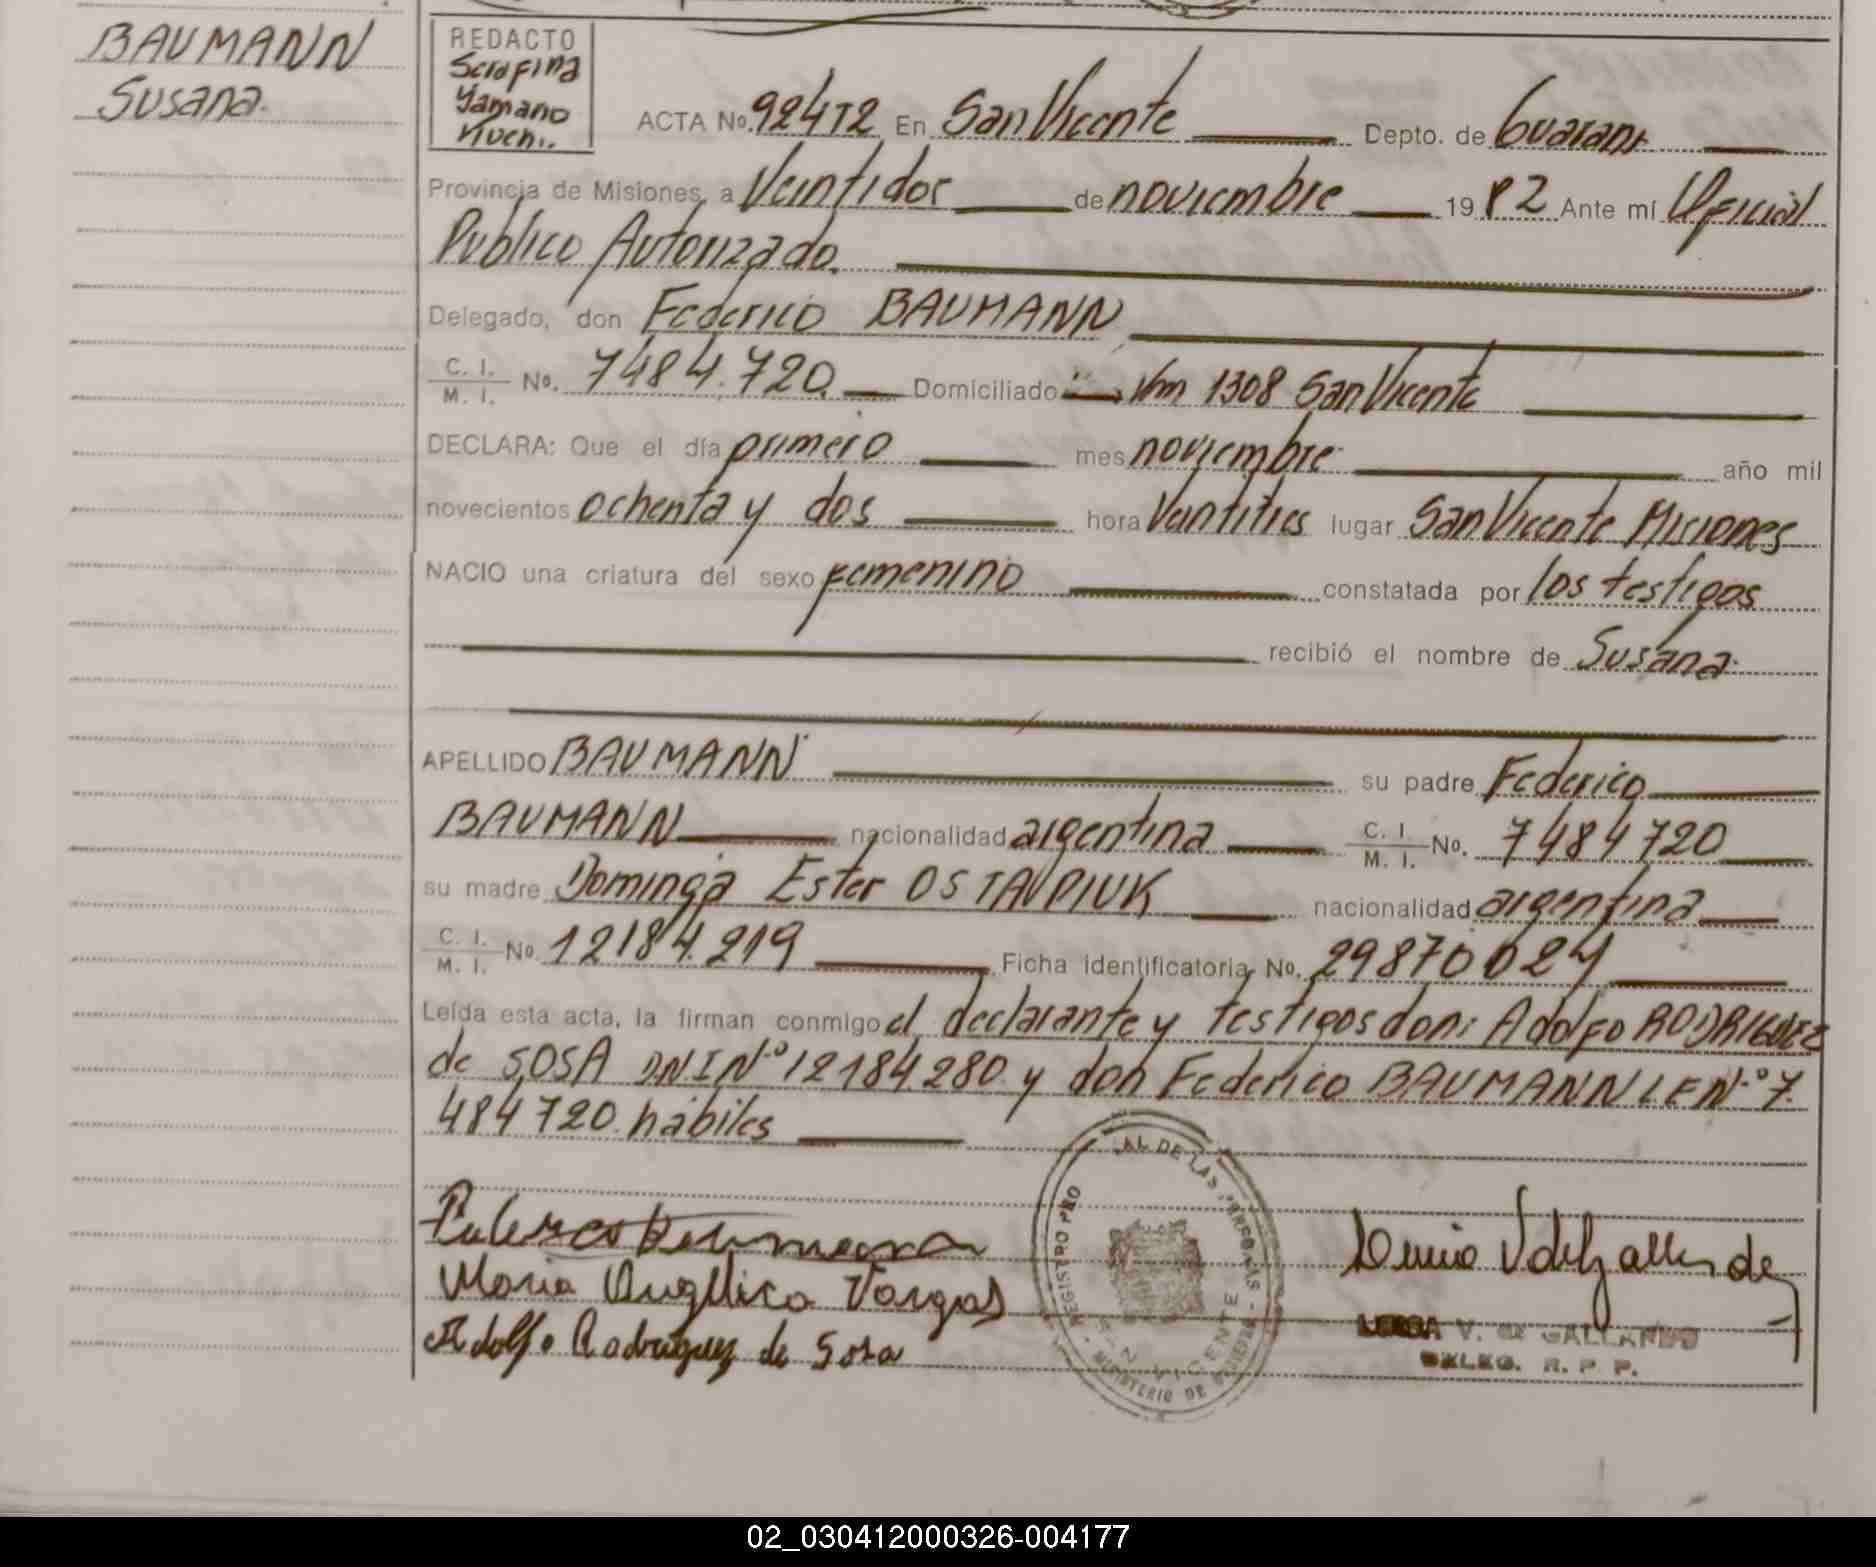 BAUMANN
Susana
REDACTO
Serafina
Yamano
ACTA No. 924T2 En San Vicente Depto. de Guarani
Provincia de Misiones, a Veintidos de noviembre 1982 Ante mí Oficial
Publico Autorizado.
Delegado, don Federico BAUMANN
C. I. / M. I. No. 7484.720. Domiciliado Km 1308 San Vicente
DECLARA: Que el día primero mes noviembre año mil
novecientos ochenta y dos hora Veintitres lugar San Vicente Misiones
NACIO una criatura del sexo femenino constatada por los testigos
recibió el nombre de Susana
APELLIDO BAUMANN su padre Federico
BAUMANN nacionalidad argentina C. I. / M. I. No. 7484720
su madre Dominga Ester OSTAPIUK nacionalidad argentina
C. I. / M. I. No. 12184.219 Ficha identificatoria No. 29870024
Leída esta acta, la firman conmigo el declarante y testigos don: Adolfo RODRIGUEZ
de SOSA DNI Nº 12184280 y don Federico BAUMANN LE Nº 7.
484720 hábiles
Maria Angelica Vargas
Adolfo Rodriguez de Sosa
V. de GALLARDO
DELEG. R. P. P.
REGISTRO PRO AL DE LAS PERSONAS
SAN VICENTE
MINISTERIO DE
02_030412000326-004177